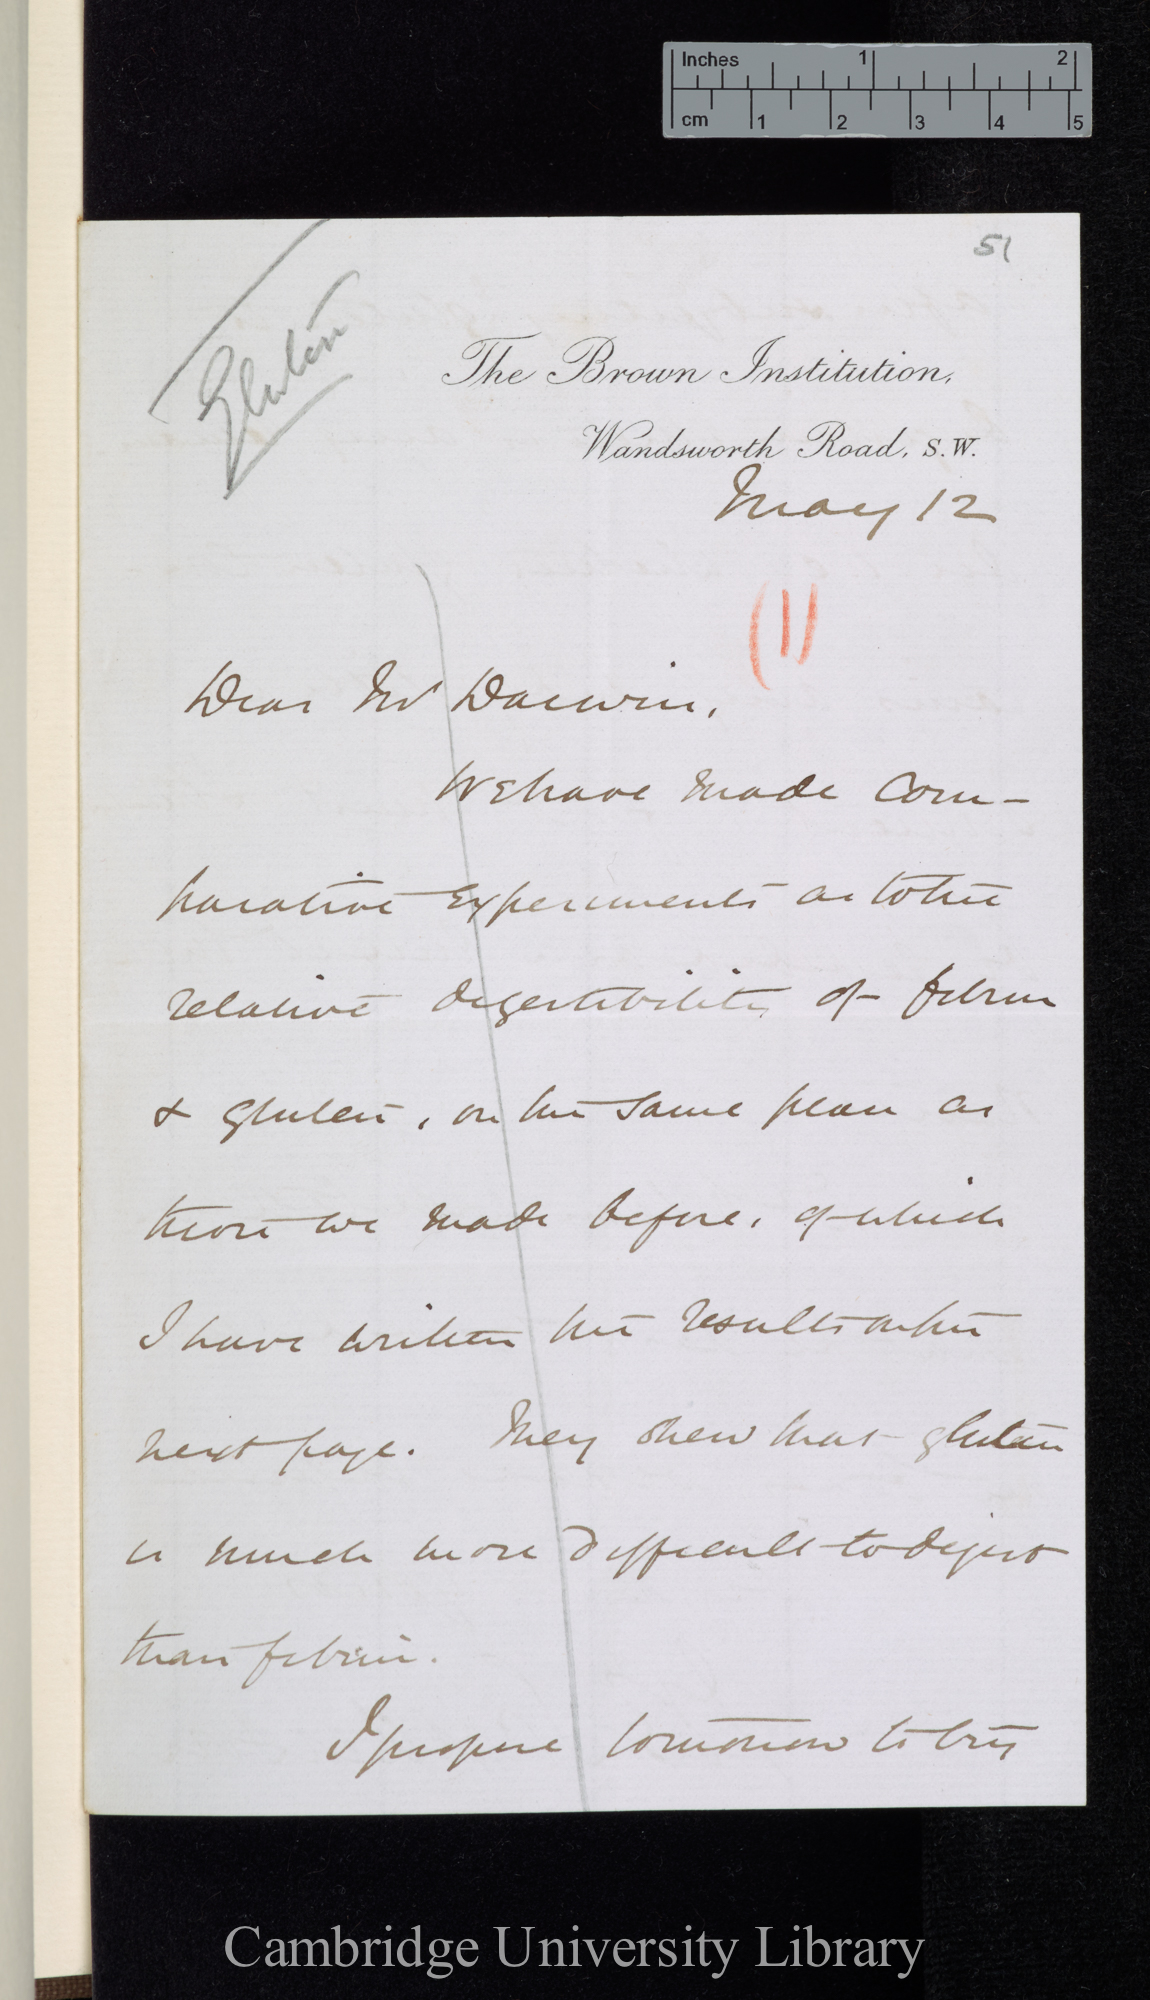 Inches 1 2
cm 1 2 3 4 5
51
Gluten
The Brown Institution,
Wandsworth Road, S.W.
May 12
(1)
Dear Mr Darwin,
We have made com-
parative experiments as to the
relative digestibility of fibrin
& gluten, on the same plan as
those we made before, of which
I have written the results on the
next page. They shew that gluten
is much more difficult to digest
than fibrin.
I propose tomorrow to try
Cambridge University Library